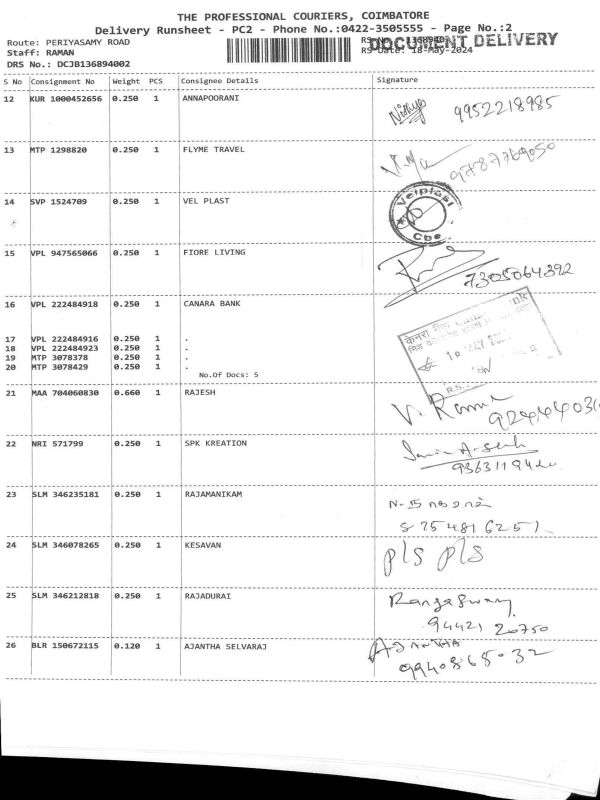 THE PROFESSIONAL COURIERS, COIMBATORE
Delivery Runsheet - PC2 - Phone No.:0422-3505555 - Page No.:2
Route: PERIYASAMY ROAD
DOCUMENT DELIVERY
Staff: RAMAN
RS Date: 18-May-2024
DRS No.: DCJB136894002
S No Consignment No Weight PCS Consignee Details Signature
12 KUR 1000452656 0.250 1 ANNAPOORANI 9952218985
13 MTP 1298820 0.250 1 FLYME TRAVEL 9787769050
14 SVP 1524709 0.250 1 VEL PLAST
Velplast
Cbe
15 VPL 947565066 0.250 1 FIORE LIVING
7305064392
16 VPL 222484918 0.250 1 CANARA BANK
17 VPL 222484916 0.250 1 .
18 VPL 222484923 0.250 1 .
19 MTP 3078378 0.250 1 .
20 MTP 3078429 0.250 1 .
No.Of Docs: 5
21 MAA 704060830 0.660 1 RAJESH
22 NRI 571799 0.250 1 SPK KREATION
23 SLM 346235181 0.250 1 RAJAMANIKAM
24 SLM 346078265 0.250 1 KESAVAN
pls pls
25 SLM 346212818 0.250 1 RAJADURAI Rangaswamy
94421 20750
26 BLR 150672115 0.120 1 AJANTHA SELVARAJ AJANTHA
9940865032